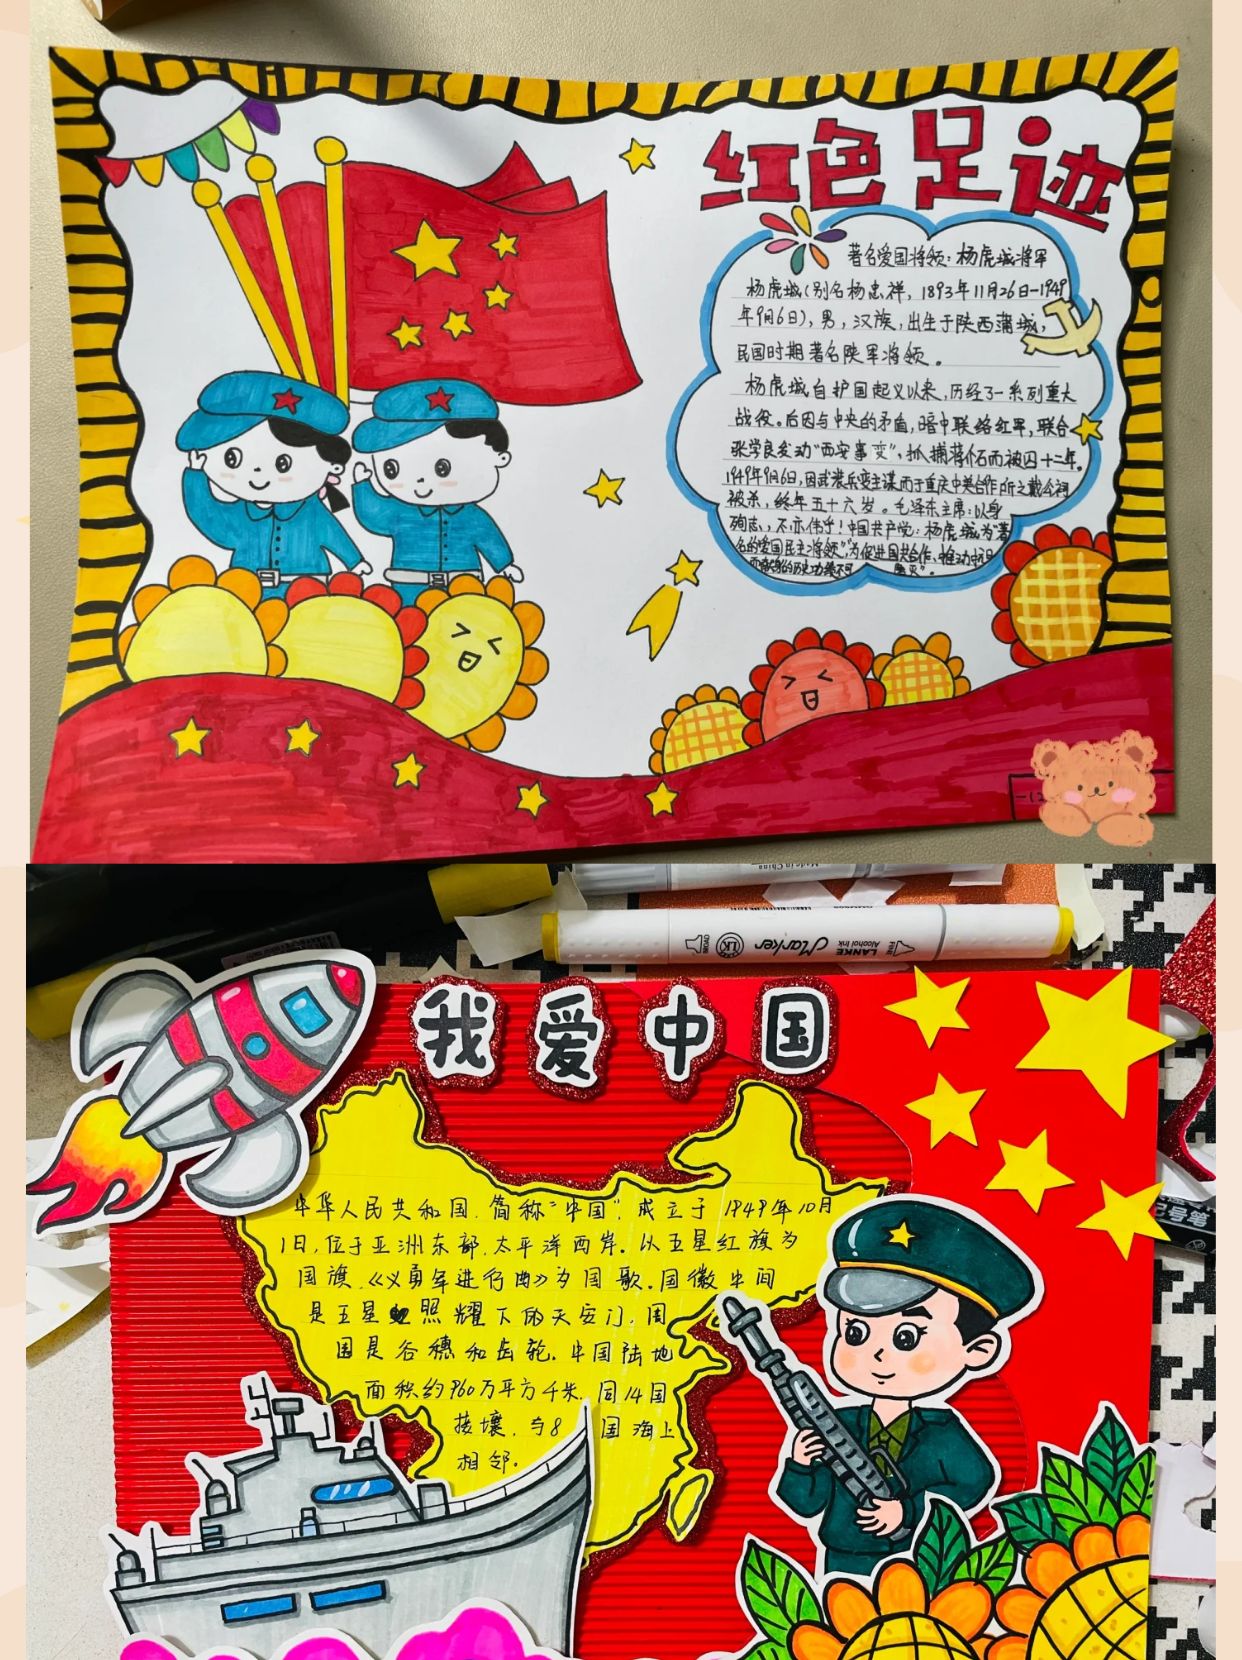 红色足迹
著名爱国将领：杨虎城将军
杨虎城（别名杨忠祥，1893年11月26日-1949
年9月6日），男，汉族，出生于陕西蒲城，
民国时期著名陕军将领。
杨虎城自护国起义以来，历经了一系列重大
战役。后因与中央的矛盾，暗中联络红军，联合
张学良发动“西安事变”，抓捕蒋介石而被囚十二年。
1949年9月6日，因武装兵变主谋而于重庆中美合作所之戴公祠
被杀，终年五十六岁。毛泽东主席：以身
殉志，不亦伟乎！中国共产党：杨虎城为“著
名的爱国民主将领”“为促进国共合作、推动抗日
的历史功勋不可 磨灭”。
Made in China
Marker
LANKE
Alcohol Ink
FINE
BROAD
LK
我爱中国
中华人民共和国，简称“中国”，成立于1949年10月
1日，位于亚洲东部，太平洋西岸。以五星红旗为
国旗，《义勇军进行曲》为国歌，国徽中间
是五星照耀下的天安门，周
围是谷穗和齿轮，中国陆地
面积约960万平方千米，同14国
接壤，与8国海上
相邻。
记号笔